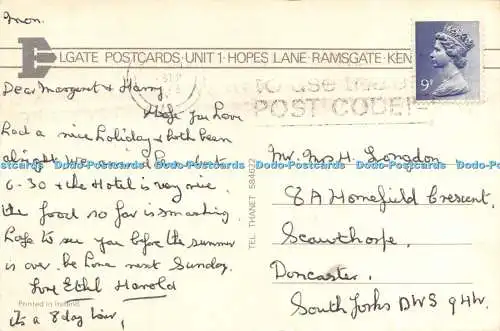 Mon.
ELGATE POSTCARDS · UNIT 1 · HOPES LANE · RAMSGATE · KEN
9P
SEP
to use the
POST CODE
Dear Margaret & Harry,
Hope you have
had a nice Holiday & both been
alright. We arrived here about
6-30 & the Hotel is very nice
the food so far is smashing
hope to see you before the summer
is over. be home next Sunday.
love Ethel Harold
its a 8 day tour,
Printed in Ireland
TEL: THANET 584622
Mr. Mrs H. Longdon
8A Homefield Crescent,
Scawthorpe,
Doncaster,
South Yorks DW5 9HW.
Dodo-Postcards Dodo-Postcards Dodo-Postcards Dodo-Postcards Dodo-Postcards Dodo-Postcards